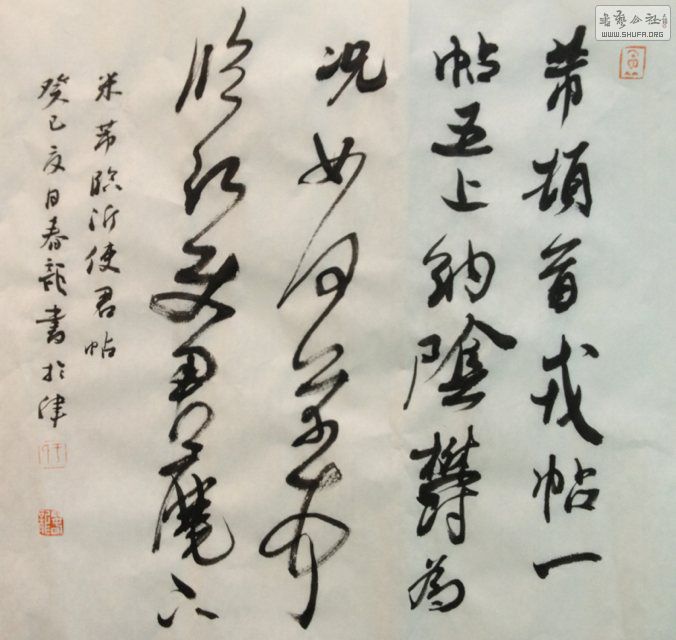 書藝公社
WWW.SHUFA.ORG
芾頓首戎帖一
帖五上納陰鬱為
况如何芾
臨沂使君麾下
米芾臨沂使君帖
癸巳夏日春龍書於津